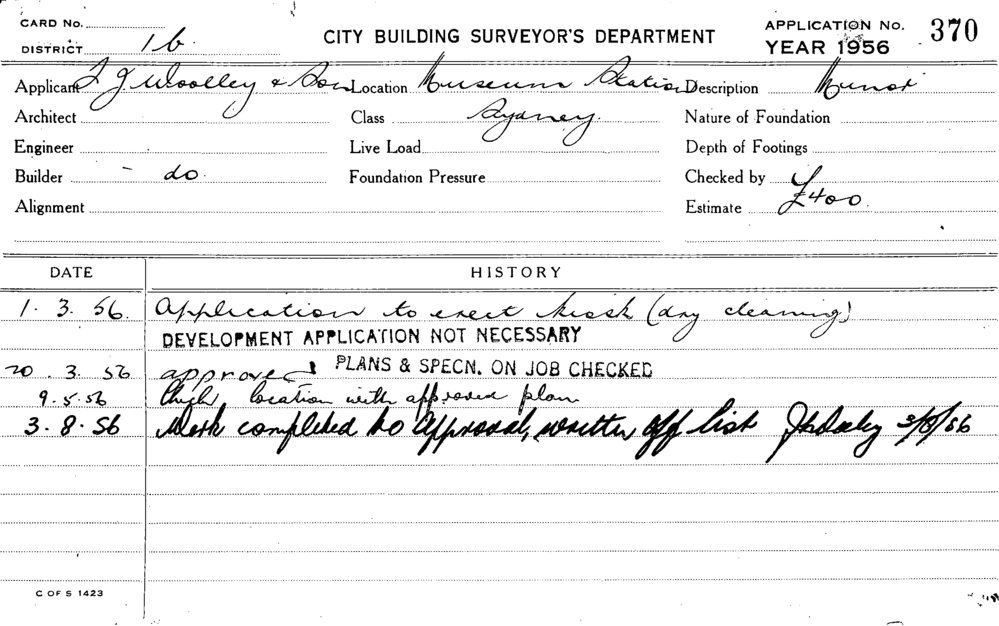 CARD No.
DISTRICT 1b
CITY BUILDING SURVEYOR'S DEPARTMENT
APPLICATION No. 370
YEAR 1956
Applicant J. Woolley & Son Location Museum Station Description
Architect Class Sydney Nature of Foundation
Engineer Live Load Depth of Footings
Builder - do Foundation Pressure Checked by
Alignment Estimate £400
DATE HISTORY
1. 3. 56. Application to erect kiosk (dry cleaning)
DEVELOPMENT APPLICATION NOT NECESSARY
20. 3. 56 approved PLANS & SPECN. ON JOB CHECKED
9. 5. 56 location with approved plan
3. 8. 56 Work completed to approval, written off list 3/8/56
C OF S 1423